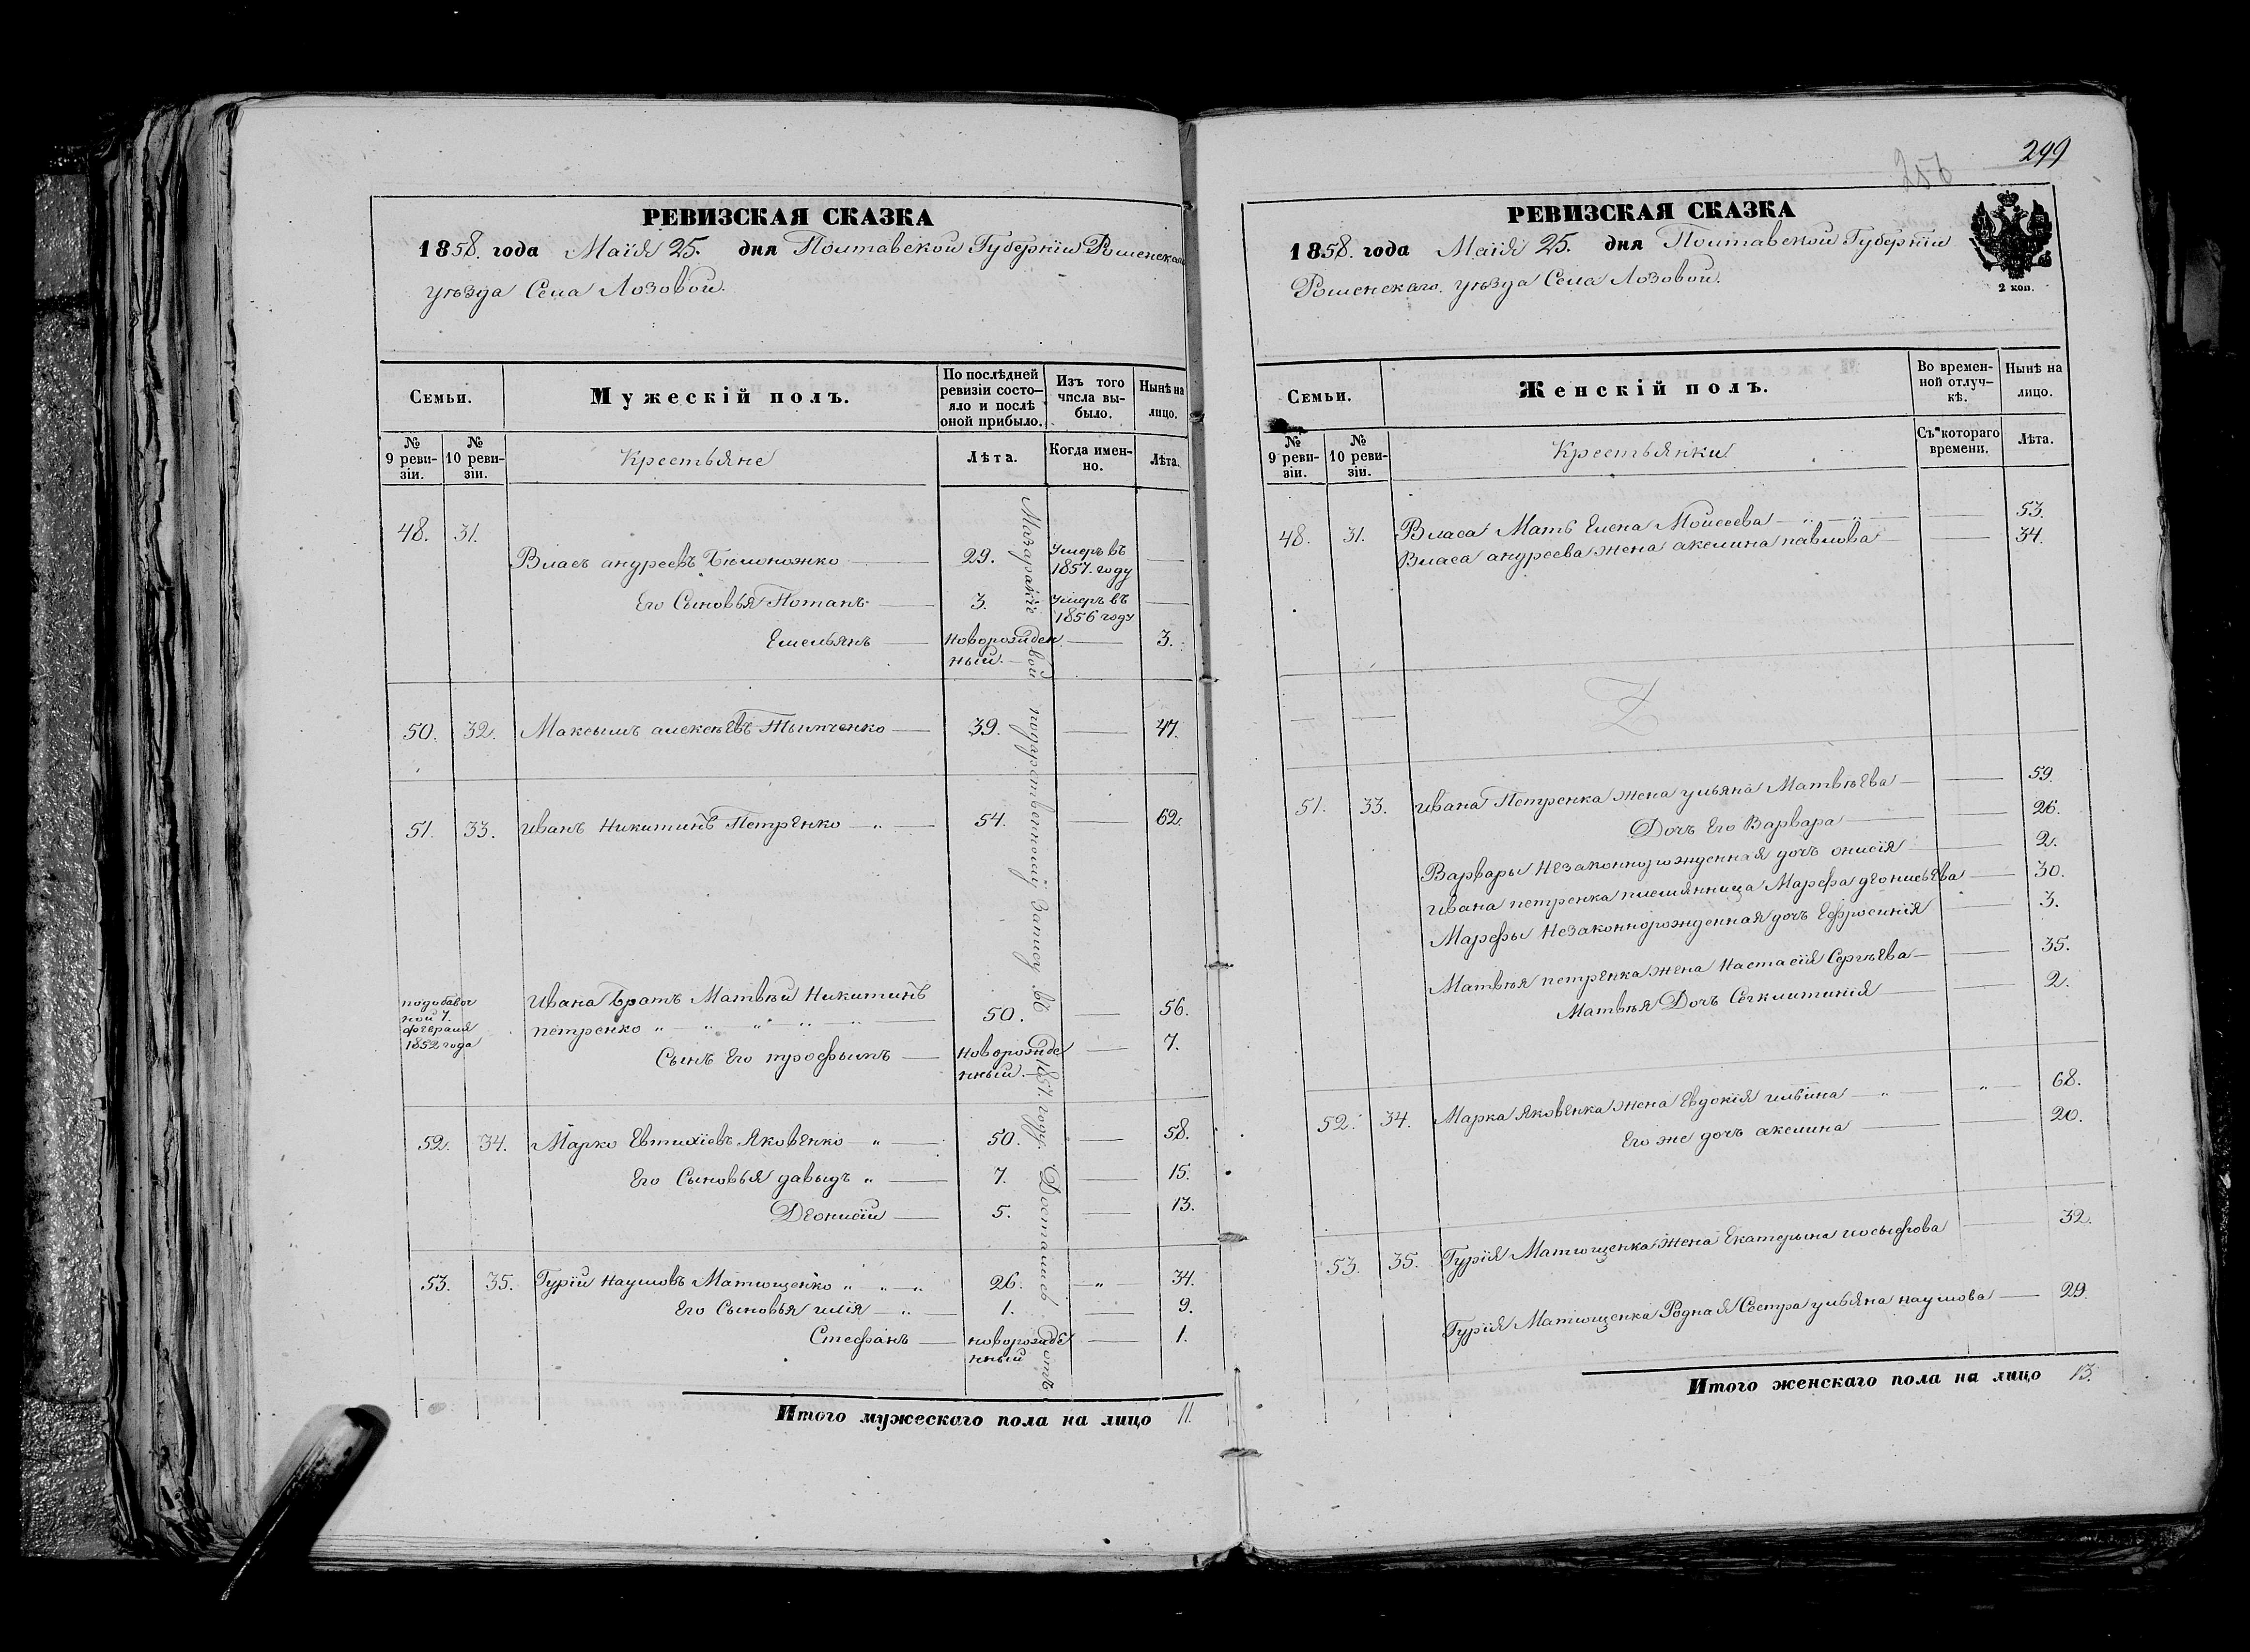 РЕВИЗСКАЯ СКАЗКА
1858. года Маія 25. дня Полтавской Губерніи Роменскаго
уѣзда Села Лозовой.
Семьи.
Мужескій полъ.
По послѣдней ревизіи состо-
яло и послѣ
оной прибыло.
Изъ того
числа вы-
было.
Нынѣ на
лицо.
№
9 реви-
зіи.
№
10 реви-
зіи.
Крестьяне
Лѣта.
Когда имен-
но.
Лѣта.
48. 31.
Власъ андреевъ Бѣлоножко 29. Умеръ въ
1857. году
Его Сыновья Потапъ 3. Умеръ въ
1856 году
Емельянъ новорожден
ный. 3.
50. 32. Максымъ алексѣевъ 39. 47.
51. 33. Иванъ Никитинъ Петренко 54. 62.
подобавоч
ной 7.
февраля
1852 года
Ивана Братъ Матвѣй Никитинъ
петренко 50. 56.
Сынъ Его трофымъ новорожде
нный. 7.
52. 34. Марко Евтихіевъ Яковенко 50. 58.
Его Сыновья давыдъ 7. 15.
Деонисій 5. 13.
53. 35. Гурій наумовъ Матющенко 26. 34.
Его Сыновья илія 1. 9.
Стефанъ новорожде
нный 1.
1857. году. Достались
Итого мужескаго пола на лицо 11.
299
256
РЕВИЗСКАЯ СКАЗКА
1858. года Маія 25. дня Полтавской Губерніи
Роменскаго. уѣзда Села Лозовой.
2 коп.
Семьи.
Женскій полъ.
Во времен-
ной отлуч-
кѣ.
Нынѣ на
лицо.
№
9 реви-
зіи.
№
10 реви-
зіи.
Крестьянки
Съ котораго
времени.
Лѣта.
48. 31. Власа Мать Елена Моисеева 53.
Власа андреева жена акелина павлова 34.
51. 33. Ивана Петренка жена ульяна Матвѣева 59.
Дочь Его Варвара 26.
Варвары Незаконнорожденная дочь онисія 2.
Ивана петренка племянница Марфа деонисьева 30.
Марфы Незаконнорожденная дочь Ефросинія 3.
Матвѣя петренка жена Настасія Сергѣева 35.
Матвѣя Дочь 2.
52. 34. Марка Яковенка жена Евдокія ильина 68.
Его же дочь акелина 20.
53. 35. Гурія Матющенка жена Екатерына иосыфова 32.
Гурія Матющенка Родная Сестра ульяна наумова 29.
Итого женскаго пола на лицо 13.